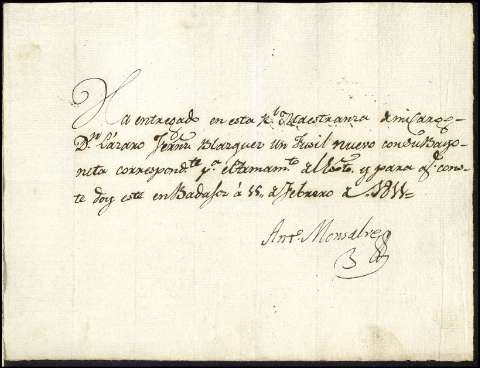 Ha entregado en esta Rl. Maestranza de mi cargo
Dn. Lázaro Fernz. Blazquez Un Fusil nuevo con su Bayo-
neta correspondte. pa. el armamto. del Exto. y para qe. cons-
te doy esta en Badajoz á 15,, de Febrero de 1811=
Anto. Monsalve